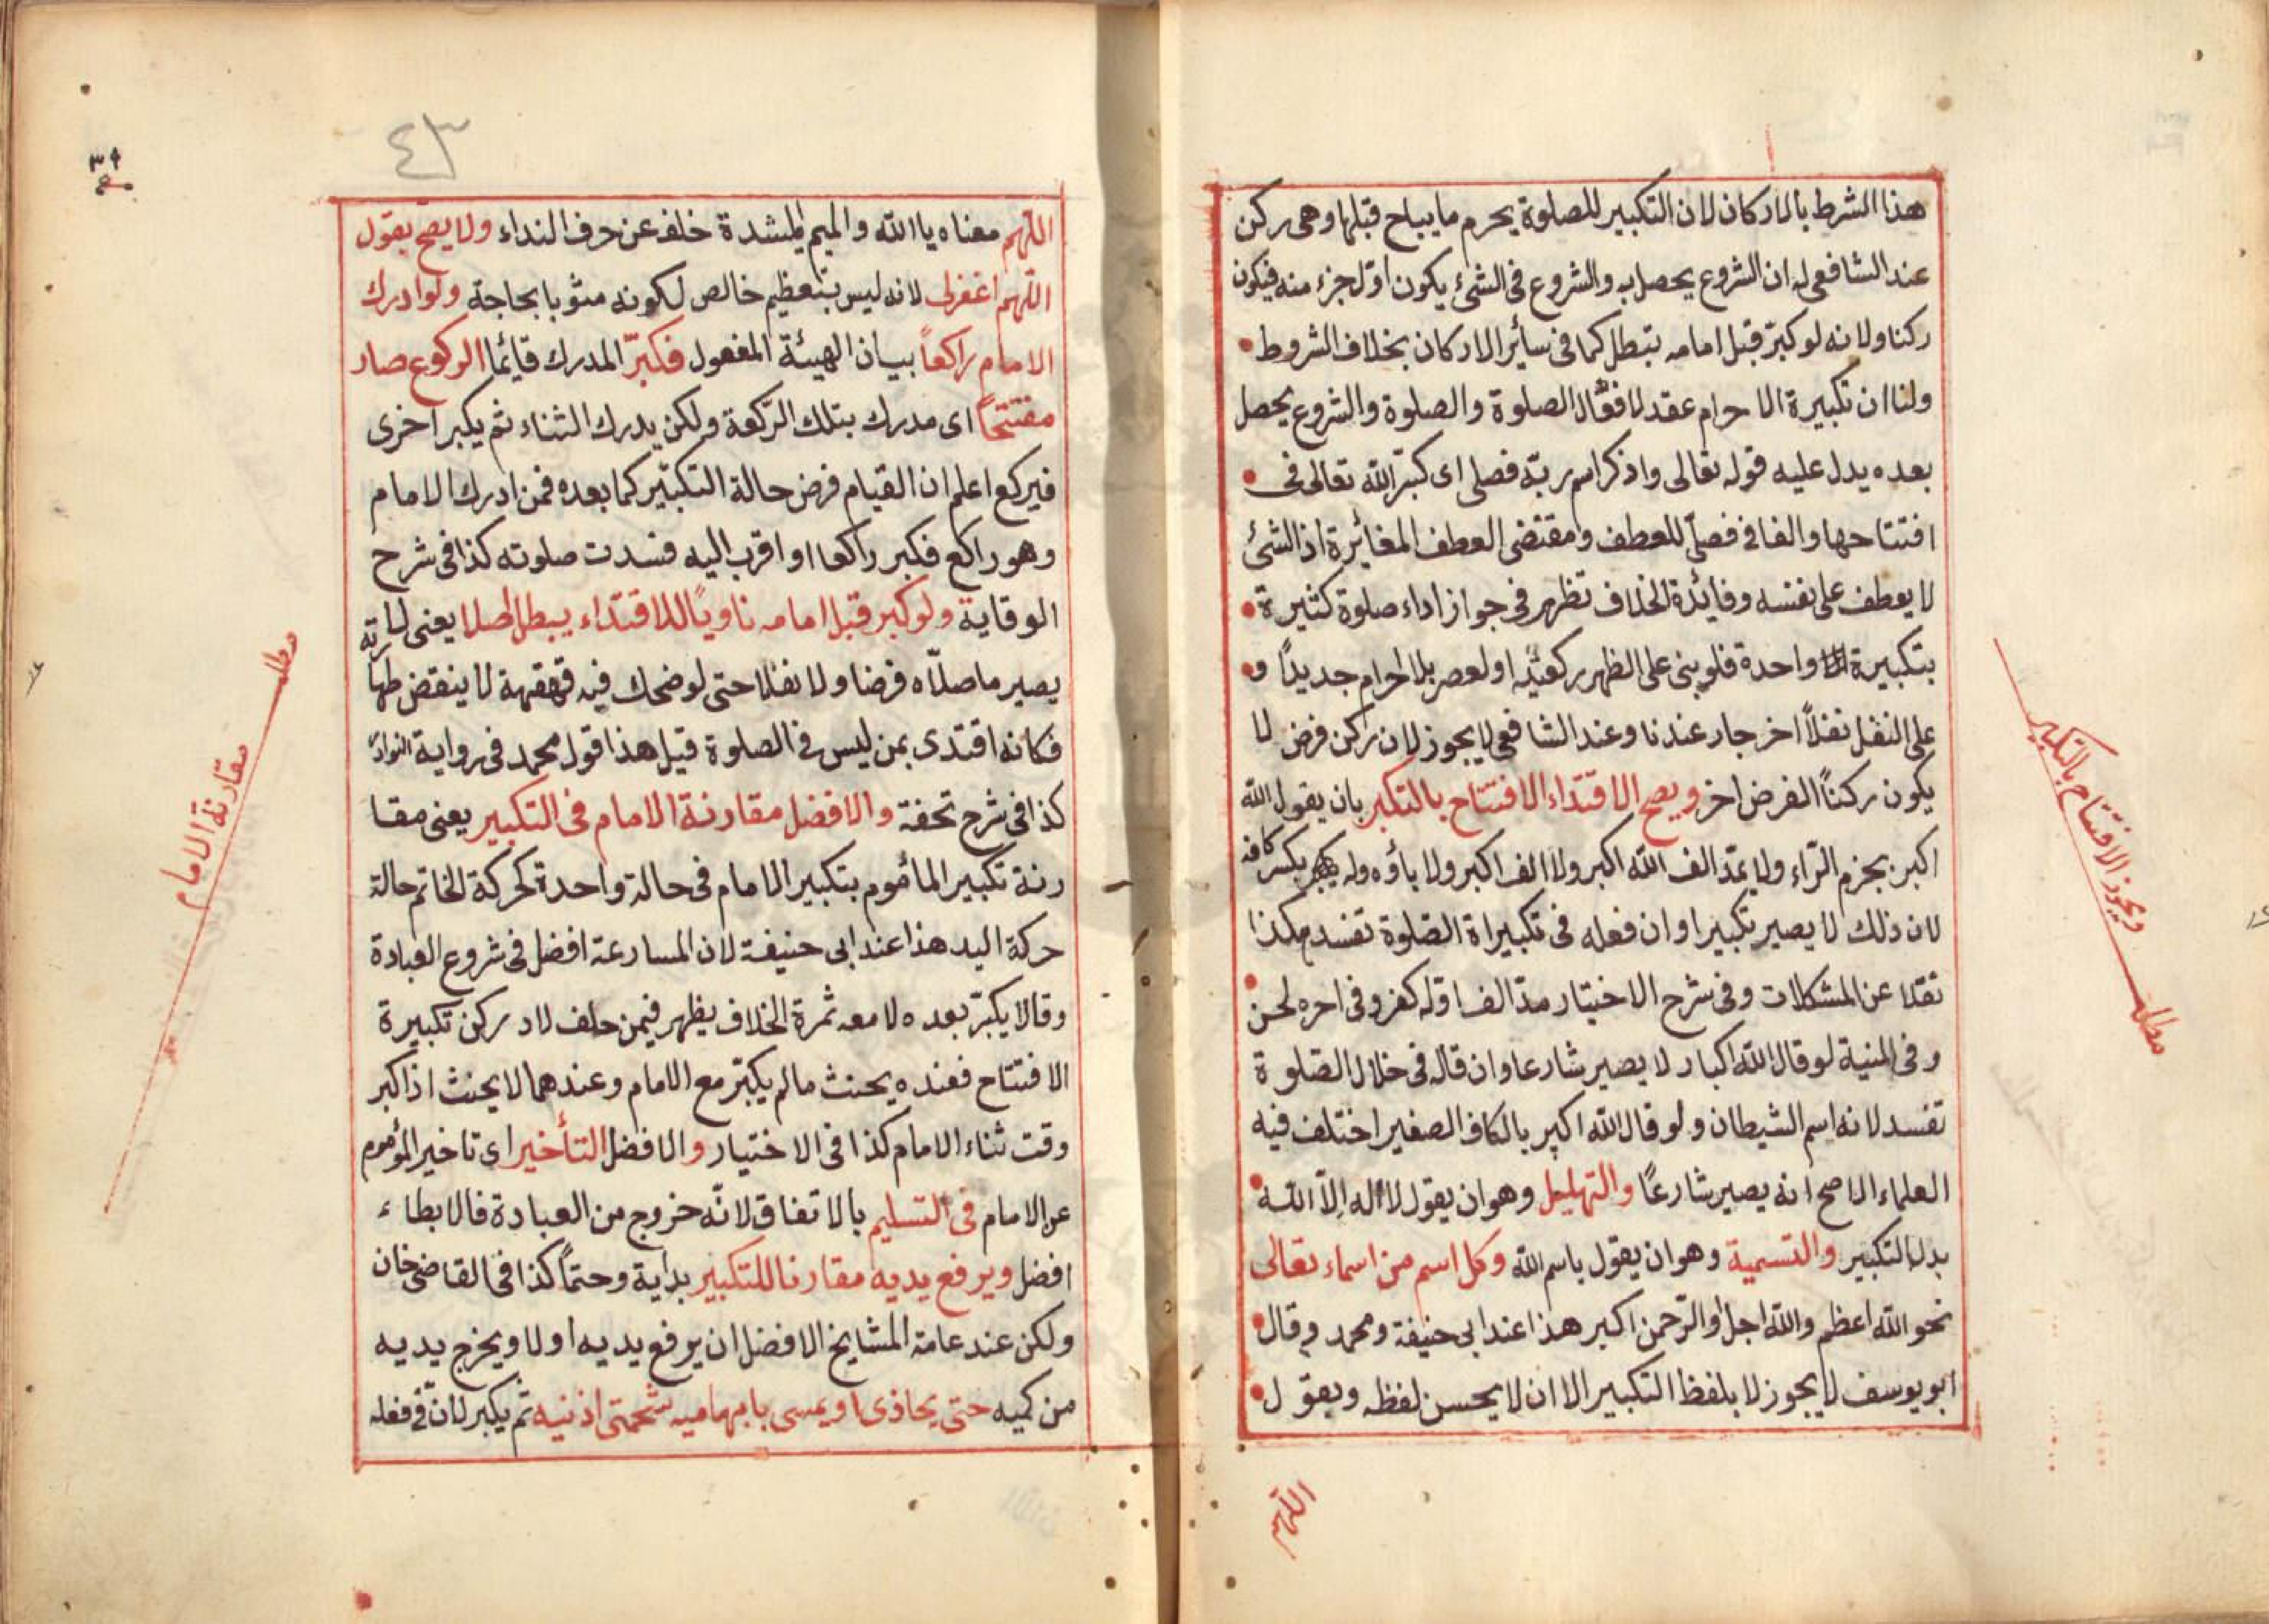 هذا الشرط بالاركان لان التكبير للصلوة يحرم ما يباح قبلها وهى ركن
عند الشافعى له ان الشروع يحصل به والشروع فى الشئ يكون اوّل جزء منه فيكون
ركنا ولانه لو كبرّ قبل امامه تبطل كما فى سائر الاركان بخلاف الشروط
ولنا ان تكبيرة الاحرام عقد لافعال الصلوة والصلوة والشروع يحصل
بعده يدل عليه قوله تعالى واذكر اسم ربّه فصلى اى كبّر الله تعالى فى
افتتاحها والفا فى فصلّى للعطف ومقتضى العطف المغائرة اذ الشئ
لا يعطف على نفسه وفائدة الخلاف تظهر فى جواز اداء صلوة كثيرة
بتكبيرة واحدة فلو بنى على الظهر ركعتيه او لعصر بلا احرام جديدًا و
على النفل نفلاً اخر جار عندنا وعند الشافعى لا يجوز لان ركن فرض لا
يكون ركنًا الفرض اخر ويصح الاقتداء الافتتاح بالتكبر بان يقول الله
اكبر بجزم الرّاء ولا يمدّ الف الله اكبر ولا الف اكبر ولا باؤه وله بكسر كافه
لان ذلك لا يصير تكبيرا وان فعله فى تكبيراة الصّلوة تفسد هكذا
نقلا عن المشكلات وفى شرح الاختيار مدّ الف اوّله كفر وفى اخره لحن
وفى المنية لو قال الله اكبار لا يصير شارعا وان قاله فى خلال الصّلوة
تفسد لانه اسم الشيطان ولو قال الله اكبر بالكاف الصغير اختلف فيه
العلماء الاصح انه يصير شارعًا والتهليل وهو ان يقول لا اله الاّ الله
بدل التكبير والتسمية وهو ان يقول باسم الله وكل اسم من اسماء تعالى
نحو الله اعظم والله اجل او الرّحمن اكبر هذا عند ابى حنيفة ومحمد وقال
ابو يوسف لا يجوز لا بلفظ التكبير الا ان لا يحسن لفظه ويقول
اللّهم
ويجوز الافتتاح بالتكبير
مطلب
٤٣
اللّهم معناه يا الله والميم المشدة خلف عن حرف النداء ولا يصح بقول
اللّهم اغفرلى لانه ليس بتعظيم خالص لكونه مثوبا بحاجة ولو ادرك
الامام راكعاً بيان الهيئة المفعول فكبّر المدرك قائما الركوع صار
مفتتحاً اى مدرك بتلك الرّكعة ولكن يدرك الثناء ثم يكبر اخرى
فيركع اعلم ان القيام فرض حالة التكبّير كما بعده فمن ادرك الامام
وهو راكع فكبر راكعا او اقرب اليه فسدت صلوته كذا فى شرح
الوقاية ولو كبر قبل امامه ناويًا للاقتداء يبطل اصلا يعنى
يصير ما صلاّه فرضا ولا نفلا حتى لو ضحك فيه قهقهة لا ينقض طهارته
فكانه اقتدى بمن ليس فى الصلوة قيل هذا قول محمد فى رواية النوادر
كذا فى شرح تحفة والافضل مقارنة الامام فى التكبير يعنى مقا
رنة تكبير المأموم بتكبير الامام فى حالة واحدة كحركة الخاتم حالة
حركة اليد هذا عند ابى حنيفة لان المسارعة افضل فى شروع العبادة
وقالا يكبّر بعده لا معه ثمرة الخلاف يظهر فيمن حلف لادركن تكبيرة
الافتتاح فعنده يحنث ما لم يكبّر مع الامام وعندهما لا يحنث اذا كبر
وقت ثناء الامام كذا فى الاختيار والافضل التأخير اى تاخير المؤموم
عن الامام فى التسليم بالاتفاق لانّه خروج من العبادة فالابطاء
افضل ويرفع يديه مقارنا للتكبير بداية وحتمًا كذا فى القاضى خان
ولكن عند عامة المشايخ الافضل ان يرفع يديه اولا ويخرج يديه
من كميه حتى يحاذى او يمسى بابهاميه شحمتى اذنيه ثم يكبر لانّ فى فعله
مطلب
مقارنة الامام